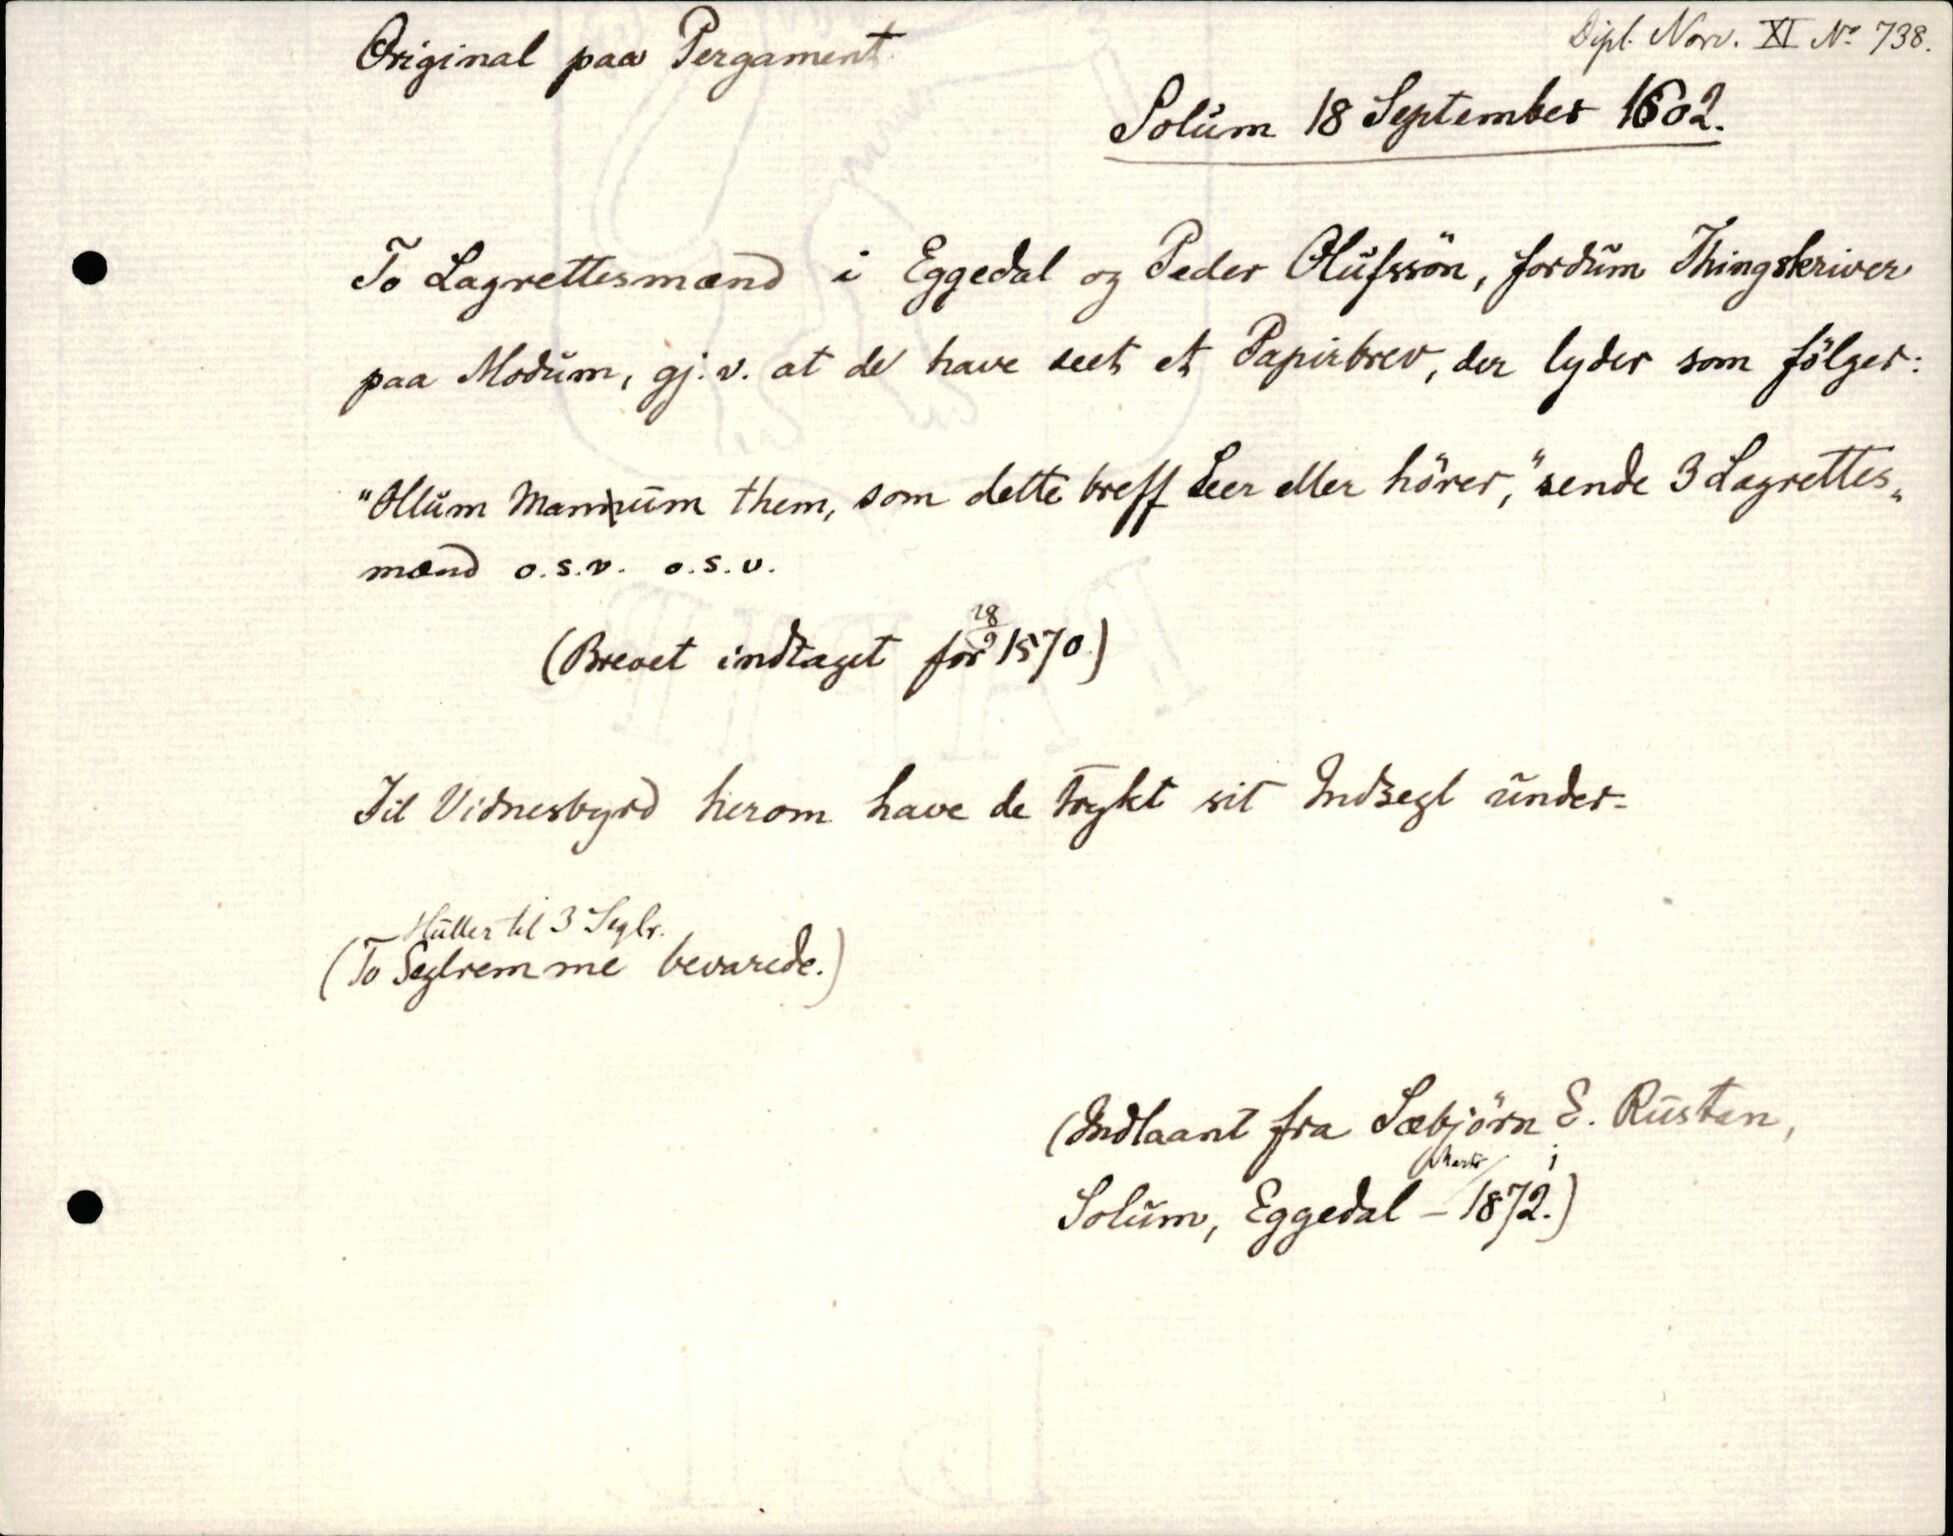 Dipl. Norv. XI No 738.
Original paa Pergament
Solum 18 September 1602.
To Lagrettesmænd i Eggedal og Peder Olufssön, fordum Thingskriver
paa Modum, gj. v. at de have seet et Papirbrev, der lyder som fölger:
"Ollum Mannum them, som dette breff seer eller hörer," sende 3 Lagrettes„
mænd o.s.v. o.s.v.
(Brevet indtaget for 28/9 1570.)
Til Vidnesbyrd herom have de trykt sit Indsegl under-
Huller til 3 Seglr.
(To Seglremme bevarede.)
(Indlaant fra Sæbjörn E. Rustan,
Solum, i Eggedal – Marts 1872.)